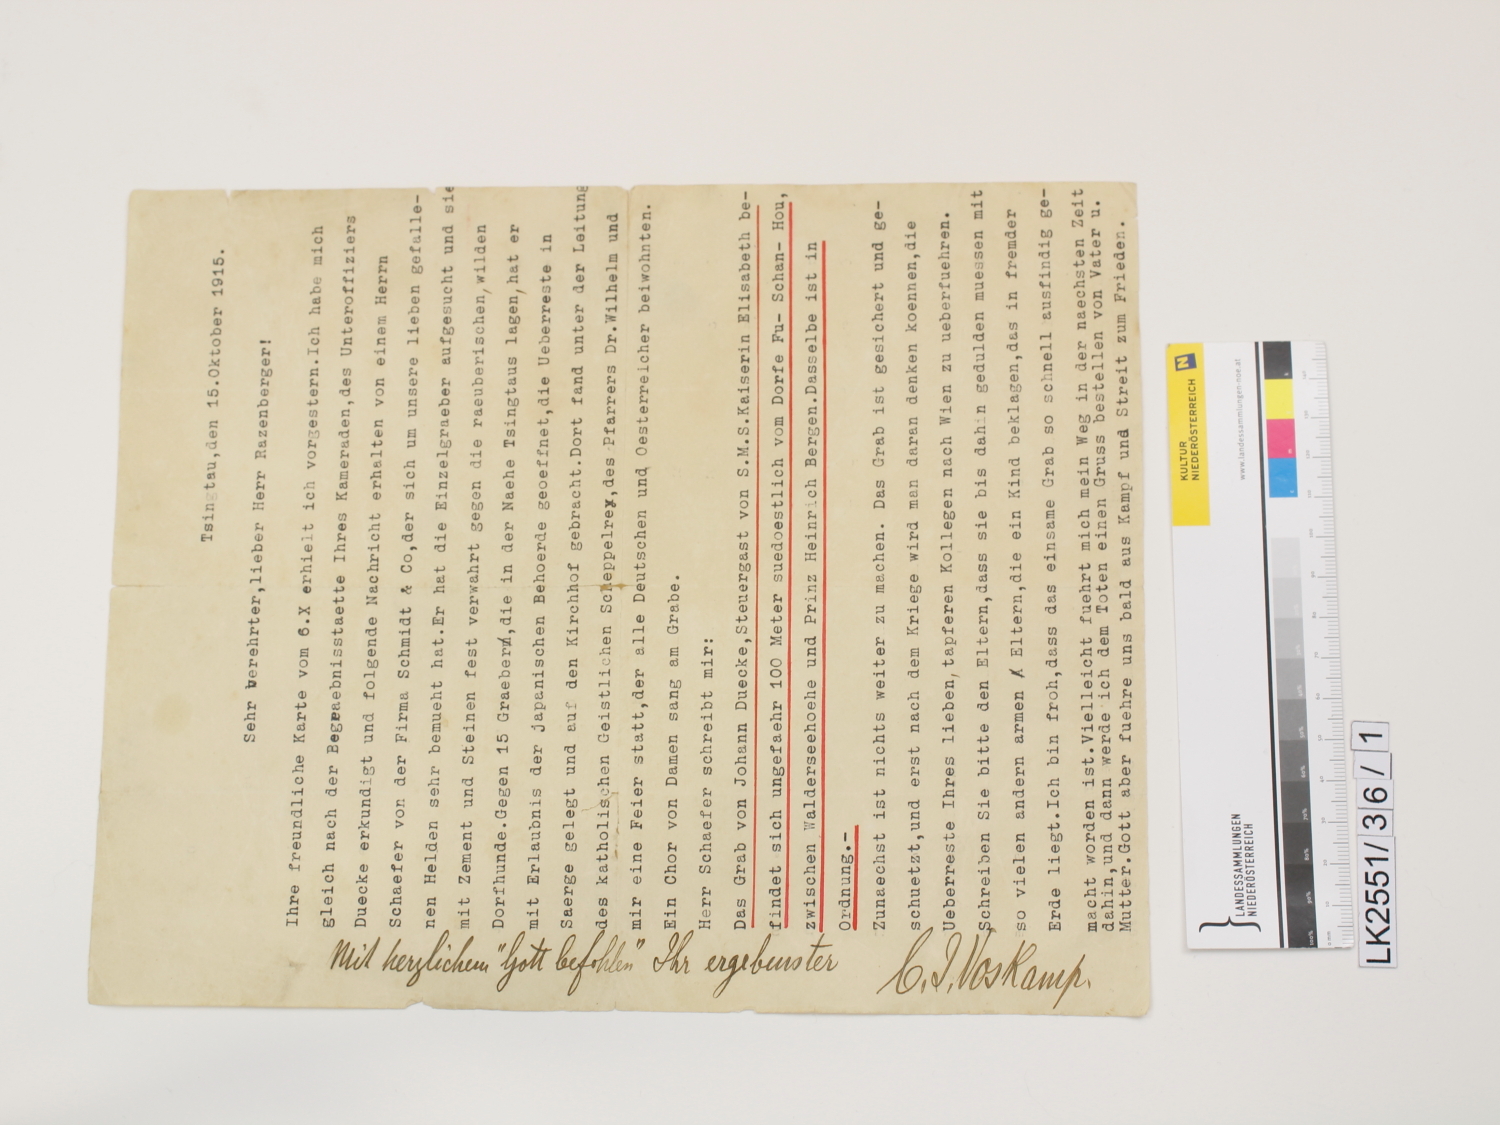 Tsingtau,den 15.Oktober 1915.
Sehr verehrter,lieber Herr Razenberger!
Ihre freundliche Karte vom 6.X erhielt ich vorgestern.Ich habe mich
gleich nach der Begraebnisstaette Ihres Kameraden,des Unteroffiziers
Duecke erkundigt und folgende Nachricht erhalten von einem Herrn
Schaefer von der Firma Schmidt & Co,der sich um unsere lieben gefalle-
nen Helden sehr bemueht hat.Er hat die Einzelgraeber aufgesucht und sie
mit Zement und Steinen fest verwahrt gegen die raeuberischen,wilden
Dorfhunde.Gegen 15 Graeber,die in der Naehe Tsingtaus lagen,hat er
mit Erlaubnis der japanischen Behoerde geoeffnet,die Ueberreste in
Saerge gelegt und auf den Kirchhof gebracht.Dort fand unter der Leitung
des katholischen Geistlichen Scheppelrey,des Pfarrers Dr.Wilhelm und
mir eine Feier statt,der alle Deutschen und Oesterreicher beiwohnten.
Ein Chor von Damen sang am Grabe.
Herr Schaefer schreibt mir:
Das Grab von Johann Duecke,Steuergast von S.M.S.Kaiserin Elisabeth be-
findet sich ungefaehr 100 Meter suedoestlich vom Dorfe Fu- Schan- Hou,
zwischen Walderseehoehe und Prinz Heinrich Bergen.Dasselbe ist in
Ordnung.-
Zunaechst ist nichts weiter zu machen. Das Grab ist gesichert und ge-
schuetzt,und erst nach dem Kriege wird man daran denken koennen,die
Ueberreste Ihres lieben,tapferen Kollegen nach Wien zu ueberfuehren.
Schreiben Sie bitte den Eltern,dass sie bis dahin gedulden muessen mit
so vielen andern armen Eltern,die ein Kind beklagen,das in fremder
Erde liegt.Ich bin froh,dass das einsame Grab so schnell ausfindig ge-
macht worden ist.Vielleicht fuehrt mich mein Weg in der naechsten Zeit
dahin,und dann werde ich dem Toten einen Gruss bestellen von Vater u.
Mutter.Gott aber fuehre uns bald aus Kampf und Streit zum Frieden.
Mit herzlichem "Gott befohlen" Ihr ergebenster
C.J.Voskamp.
KULTUR
NIEDERÖSTERREICH
N
www.landessammlungen-noe.at
LANDESSAMMLUNGEN
NIEDERÖSTERREICH
LK2551/36/1